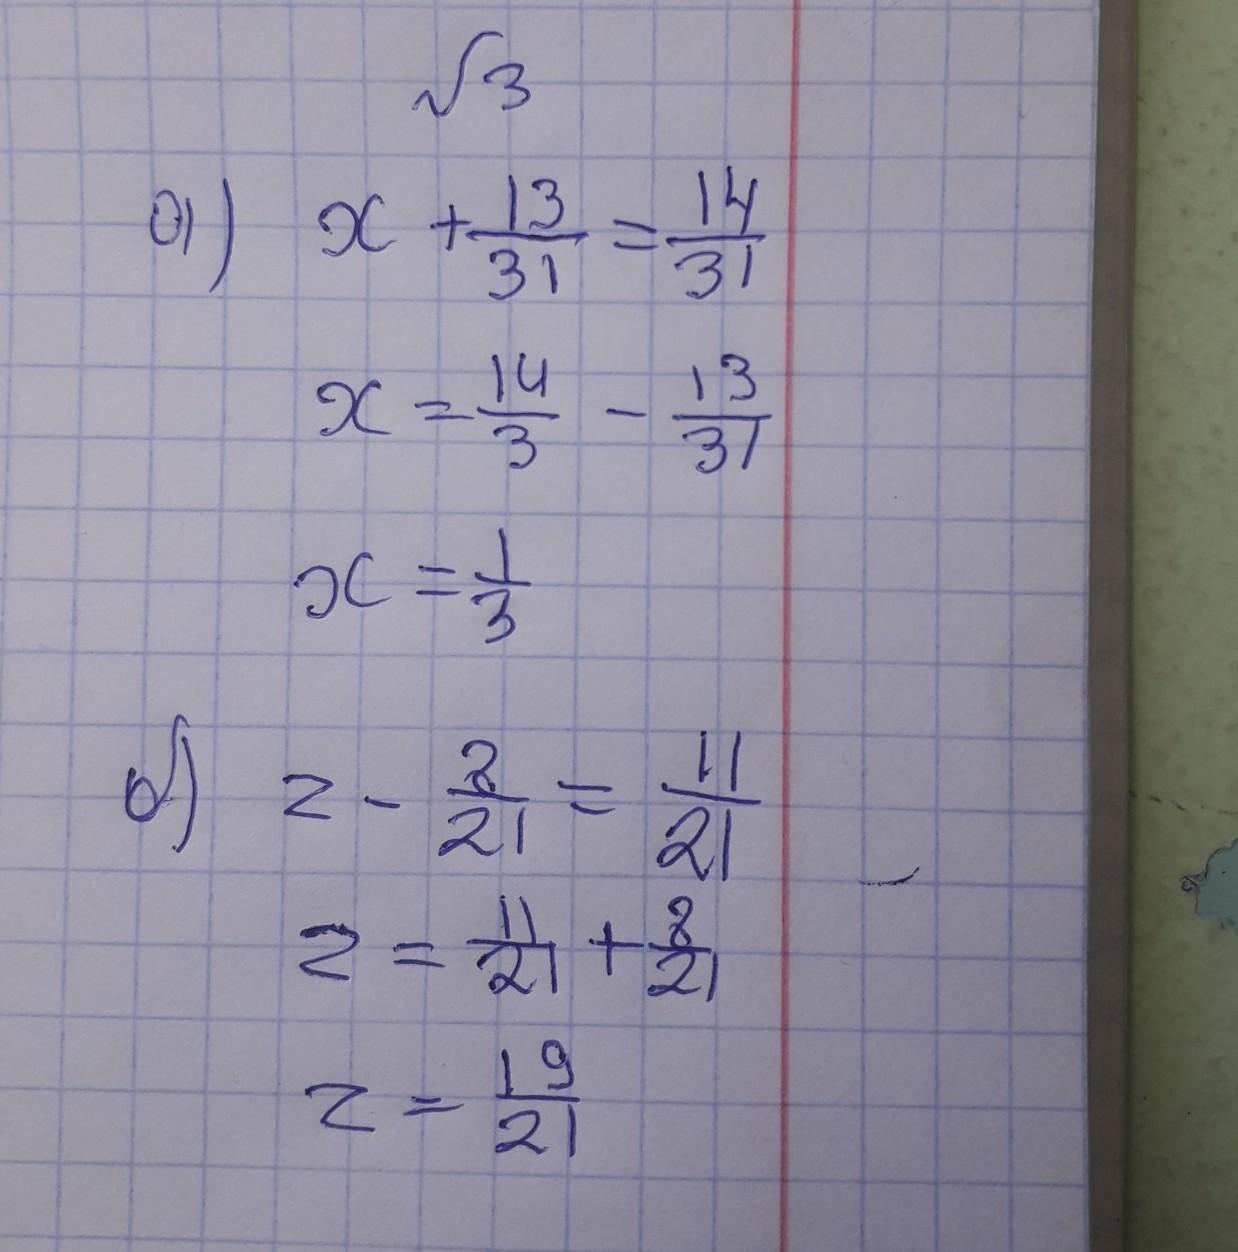 √3
а) x + 13/31 = 14/31
x = 14/3 - 13/31
x = 1/3
б) z - 2/21 = 11/21
z = 11/21 + 2/21
z = 19/21